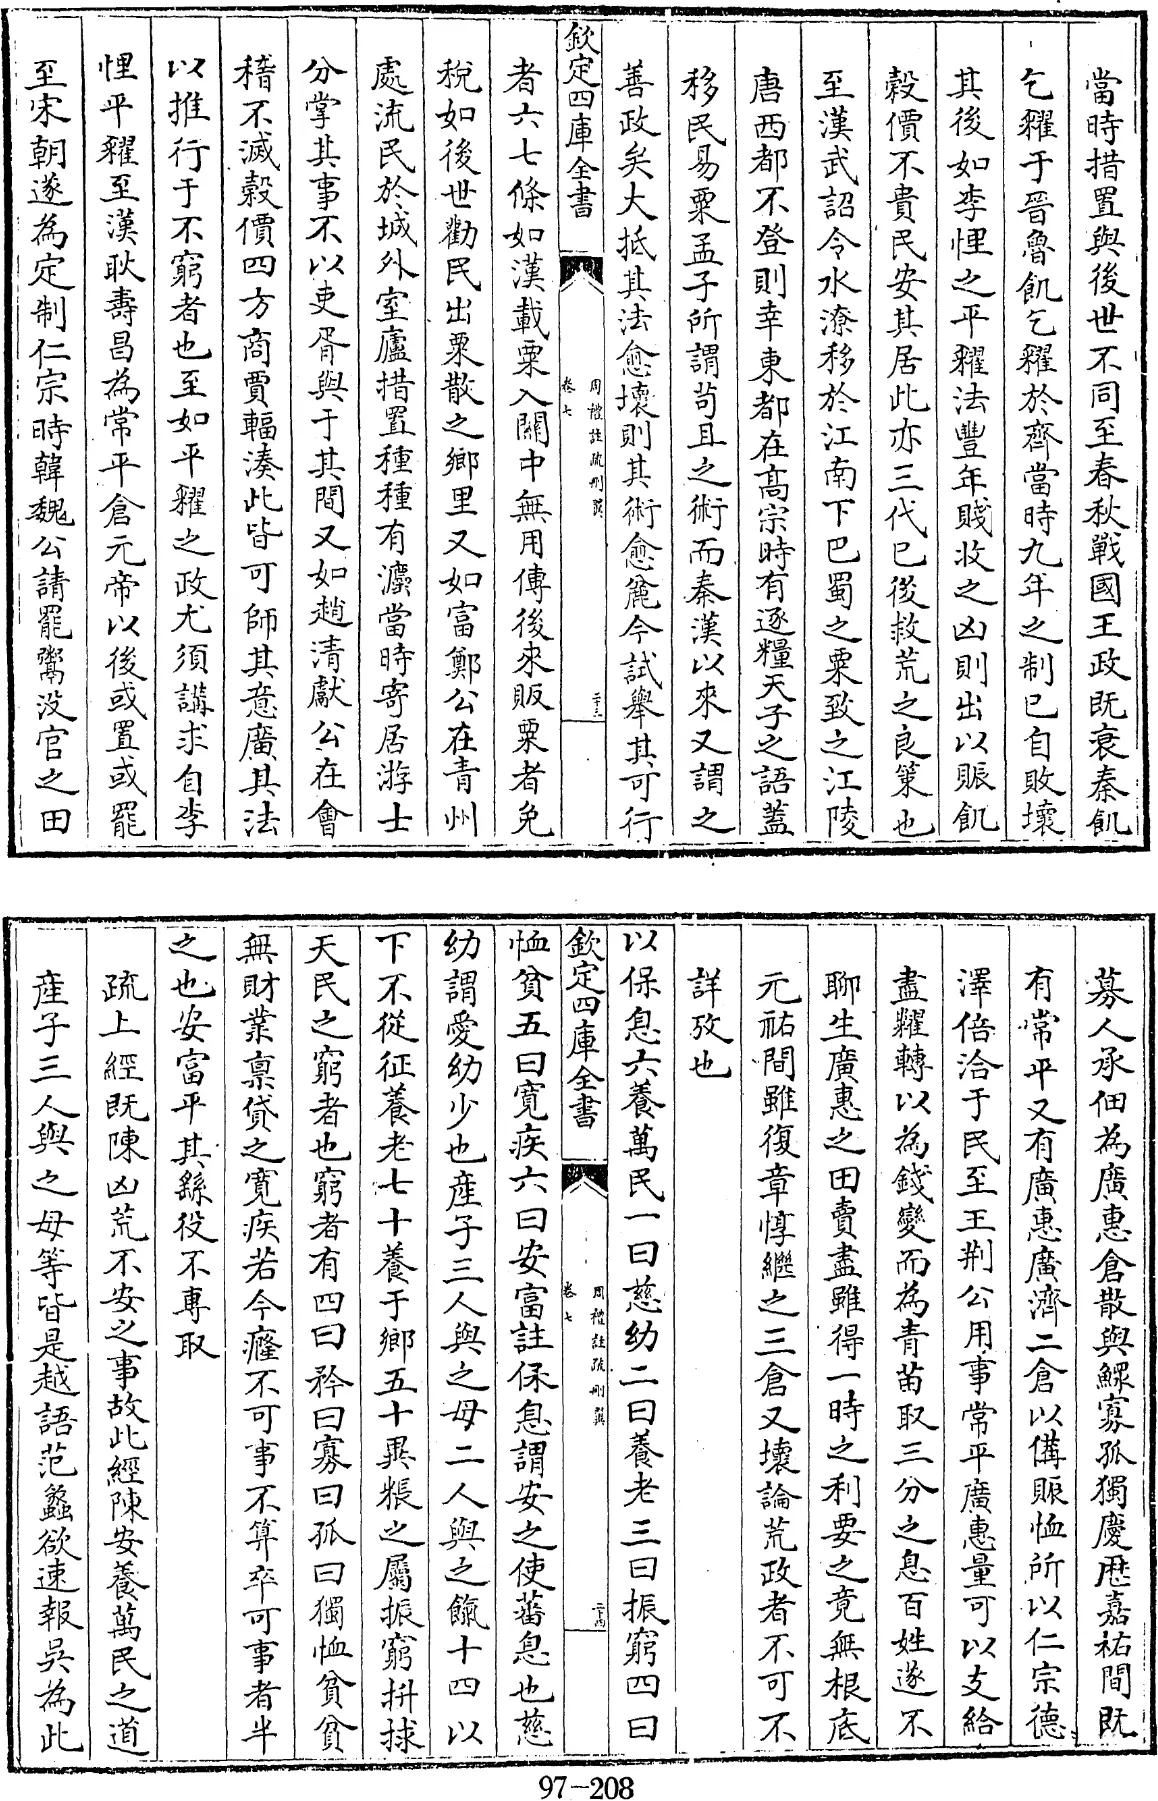 當時措置與後世不同至春秋戰國王政既衰秦飢
乞糴于晉魯飢乞糴於齊當時九年之制已自敗壞
其後如李悝之平糴法豐年賤收之凶則出以賑飢
穀價不貴民安其居此亦三代已後救荒之良策也
至漢武詔令水潦移於江南下巴蜀之粟致之江陵
唐西都不登則幸東都在高宗時有逐糧天子之語蓋
移民易粟孟子所謂苟且之術而秦漢以來又謂之
善政矣大抵其法愈壞則其術愈麄今試舉其可行
欽定四庫全書
周禮註疏刪翼
卷七
二十三
者六七條如漢載粟入關中無用傳後來販粟者免
稅如後世勸民出粟散之鄉里又如富鄭公在青州
處流民於城外室廬措置種種有灋當時寄居游士
分掌其事不以吏胥與于其間又如趙清獻公在會
稽不減穀價四方商賈輻湊此皆可師其意廣其法
以推行于不窮者也至如平糴之政尤須講求自李
悝平糴至漢耿壽昌為常平倉元帝以後或置或罷
至宋朝遂為定制仁宗時韓魏公請罷鬻没官之田
募人承佃為廣惠倉散與鰥寡孤獨慶厯嘉祐間既
有常平又有廣惠廣濟二倉以備賑恤所以仁宗德
澤倍洽于民至王荆公用事常平廣惠量可以支給
盡糶轉以為錢變而為青苗取三分之息百姓遂不
聊生廣惠之田賣盡雖得一時之利要之竟無根底
元祐間雖復章惇繼之三倉又壞論荒政者不可不
詳攷也
以保息六養萬民一曰慈幼二曰養老三曰振窮四曰
欽定四庫全書
周禮註疏刪翼
卷七
二十四
恤貧五曰寛疾六曰安富註保息謂安之使蕃息也慈
幼謂愛幼少也産子三人與之母二人與之餼十四以
下不從征養老七十養于鄉五十異粻之屬振窮拼捄
天民之窮者也窮者有四曰矜曰寡曰孤曰獨恤貧貧
無財業禀貸之寛疾若今癃不可事不算卒可事者半
之也安富平其繇役不專取
疏上經既陳凶荒不安之事故此經陳安養萬民之道
産子三人與之母等皆是越語范蠡欲速報吳為此
97-208